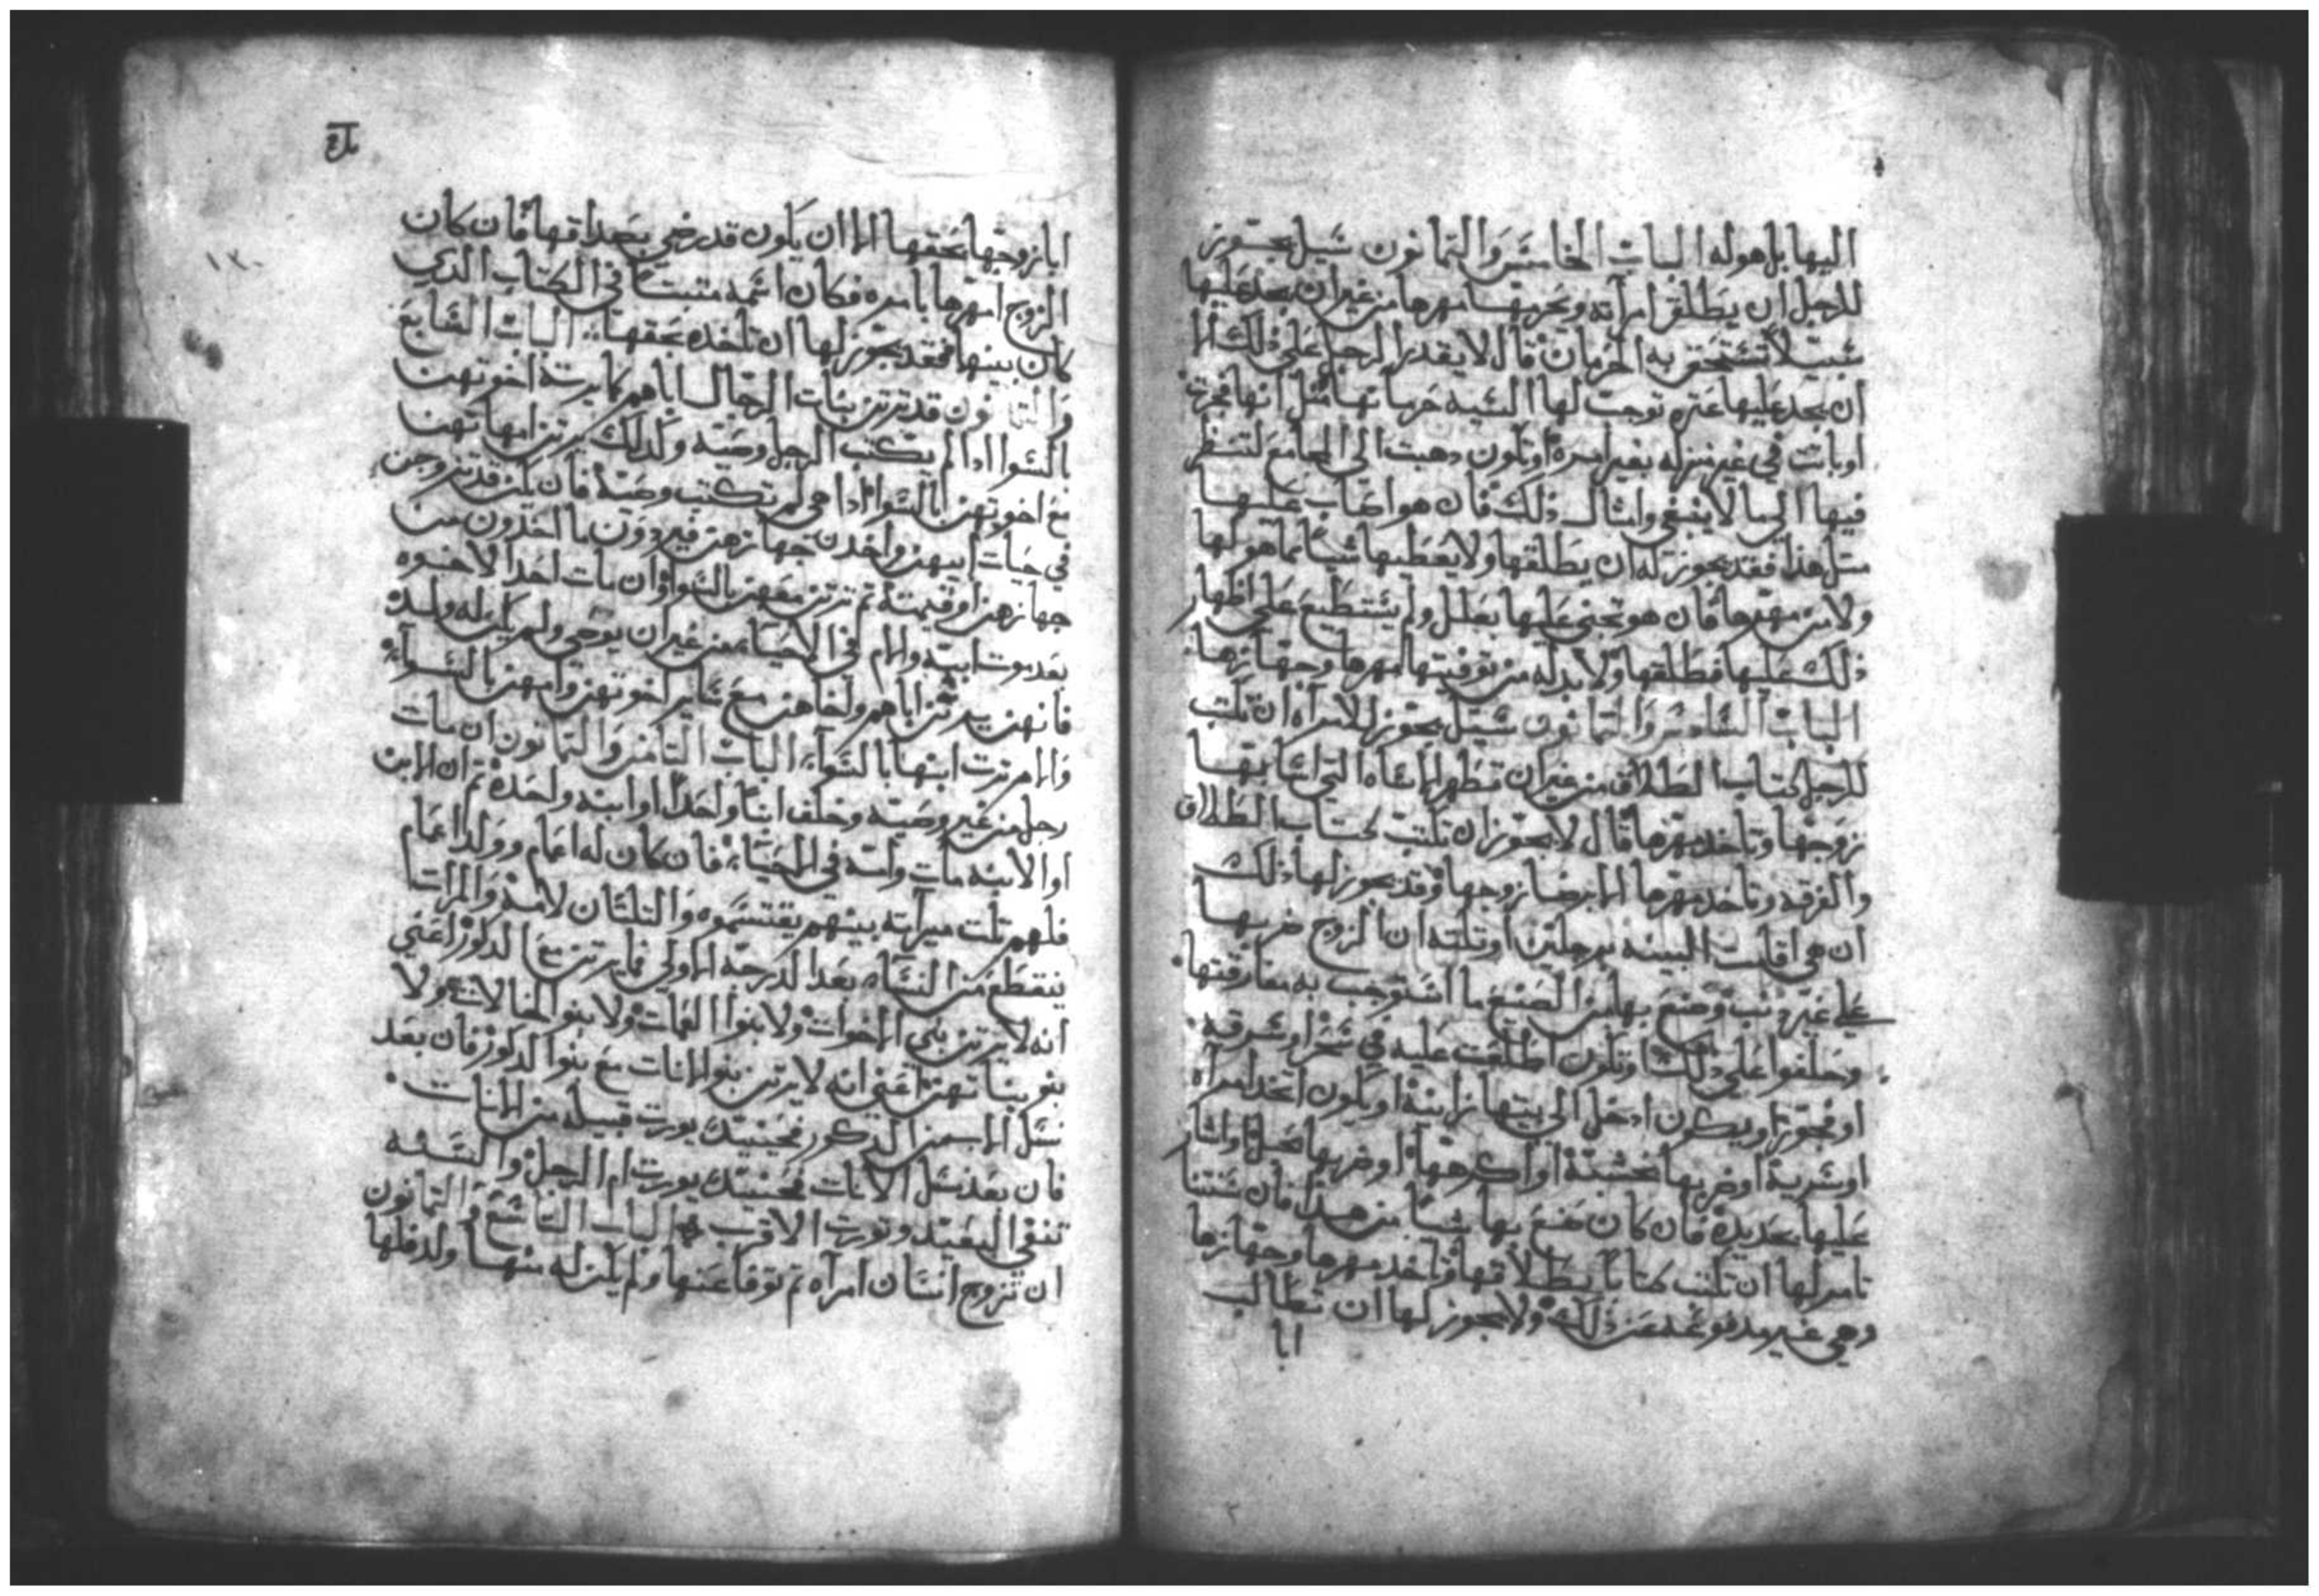 اليها بل هو له الباب الخامس والثمانون سيل يجوز
للرجل ان يطلق امرأته ويحرمها مهرها من غير ان يجد عليها
شيئ تستحق به الحرمان قال لا يقدر الرجل على ذلك الا
ان يجد عليها عثره توجب لها السيه حرمانها مثل انها فجرت
او باتت في غير منزله بغير امره او تكون دهبت الى المجامع لتنظر
فيها الى ما لا ينبغي وامثال ذلك فان هو اصاب عليها
مثل هذا فقد يجوز له ان يطلقها ولا يعطيها شيئا مما هو لها
ولا من مهرها فان هو تجنى عليها بعلل ولم يستطيع على اظهار
ذلك عليها فطلقها ولا بد له من توفيتها مهرها وجهازها
الباب السادس والثمانون سيل يجوز للامرأه ان تكتب
للرجل كتاب الطلاق من غير ان تظهر الاشاه التي اشا بها
زوجها وتاخد مهرها قال لا يجوز ان تكتب كتاب الطلاق
والفرقه وتاخد مهرها الا برضا زوجها وقد يجوز لها ذلك
ان هي اقامت البينه برجلين او تلته ان الزوج ضربها
على غير ذنب وصنع بها من الصنع ما استوجب به مفارقتها
وحلفوا على ذلك او تكون اطلعت عليه في سحر او سرقه
او فجور او يكون ادخل الى بيتها زانيه او يكون اتخد امرأه
او سريه او ضربها بخشبة او اكرهها او ضربها بحبل او اشار
عليها بحديده فان كان صنع بها شيئا من هدا فان سنتنا
تامر لها ان تكتب كتابا بطلاقها وتاخد مهرها وجهازها
وهي غير مدفوعه عن ذلك ولا يجوز لها ان تطالب
ابا
ابا زوجها بحقها الا ان يكون قد رضي بصداقها فان كان
الزوج امهرها بامره فكان اسمه متبتا في الكتاب الدي
كان بينها فقد يجوز لها ان تاخده بحقها الباب السابع
والثمانون قد ترتن بنات الرجال اباهم كما يرته اخوتهن
بالسوا ادا لم يكتب الرجل وصيه وكدلك يرتن امهاتهن
مع اخوتهن بالسوا ادا هي لم تكتب وصية فان يكن قد تزوجن
في حيات ابيهن واخدن جهازهن فيرددن ما اخدون من
جهازهن او قيمته ثم ترتن معهن بالسوا وان مات احد الاخوه
بعد موت ابيه والام في الاحياء من غير ان يوصي ولم يكن له ولد
فانهن يرتن اباهم واخاهن مع ساير اخوتهن وامهن بالسواء
والام ترت ابنها بالسواء الباب التامن والثمانون ان مات
رجل من غير وصيه وخلف ابنا واحدا او ابنه واحدة ثم ان الابن
او الابنه مات وامه في الحياة فان كان له اعمام وولد اعمام
فلهم تلت ميراثه بينهم يقتسموه والتلتان لامه والمراث
ينقطع من النساء بعد الدرجه الاولي فما يرتن مع الدكور اعني
انه لا يرتن بني الاخوات ولا بنو العمات ولا بنو الخالات ولا
بنو بناتهن اعني انه لا يرتن بنو الانات مع بنو الدكور فان بعد
نسل الاسم من الدكور فحينيد يورت قبيله من الانات
فان بعد نسل الانات فحينيد يورت ام الرجل والسنه
تنفي البعيد وتورت الاقرب الباب التاسع والثمانون
ان تزوج انسان امرأه ثم توفا عنها ولم يكن له منها ولد فلها